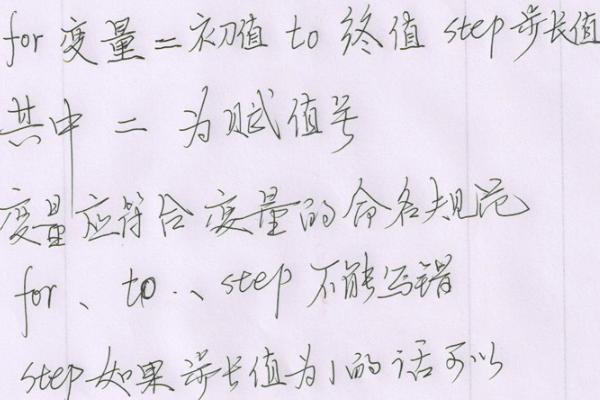 for 变量=初值 to 终值 step 步长值
其中 = 为赋值号
变量应符合变量的命名规范
for、to、step 不能写错
step 如果步长值为1的话可以